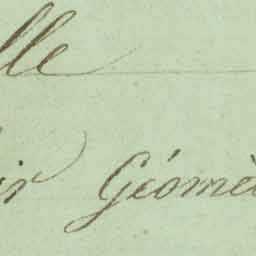 lle
ir Géomè